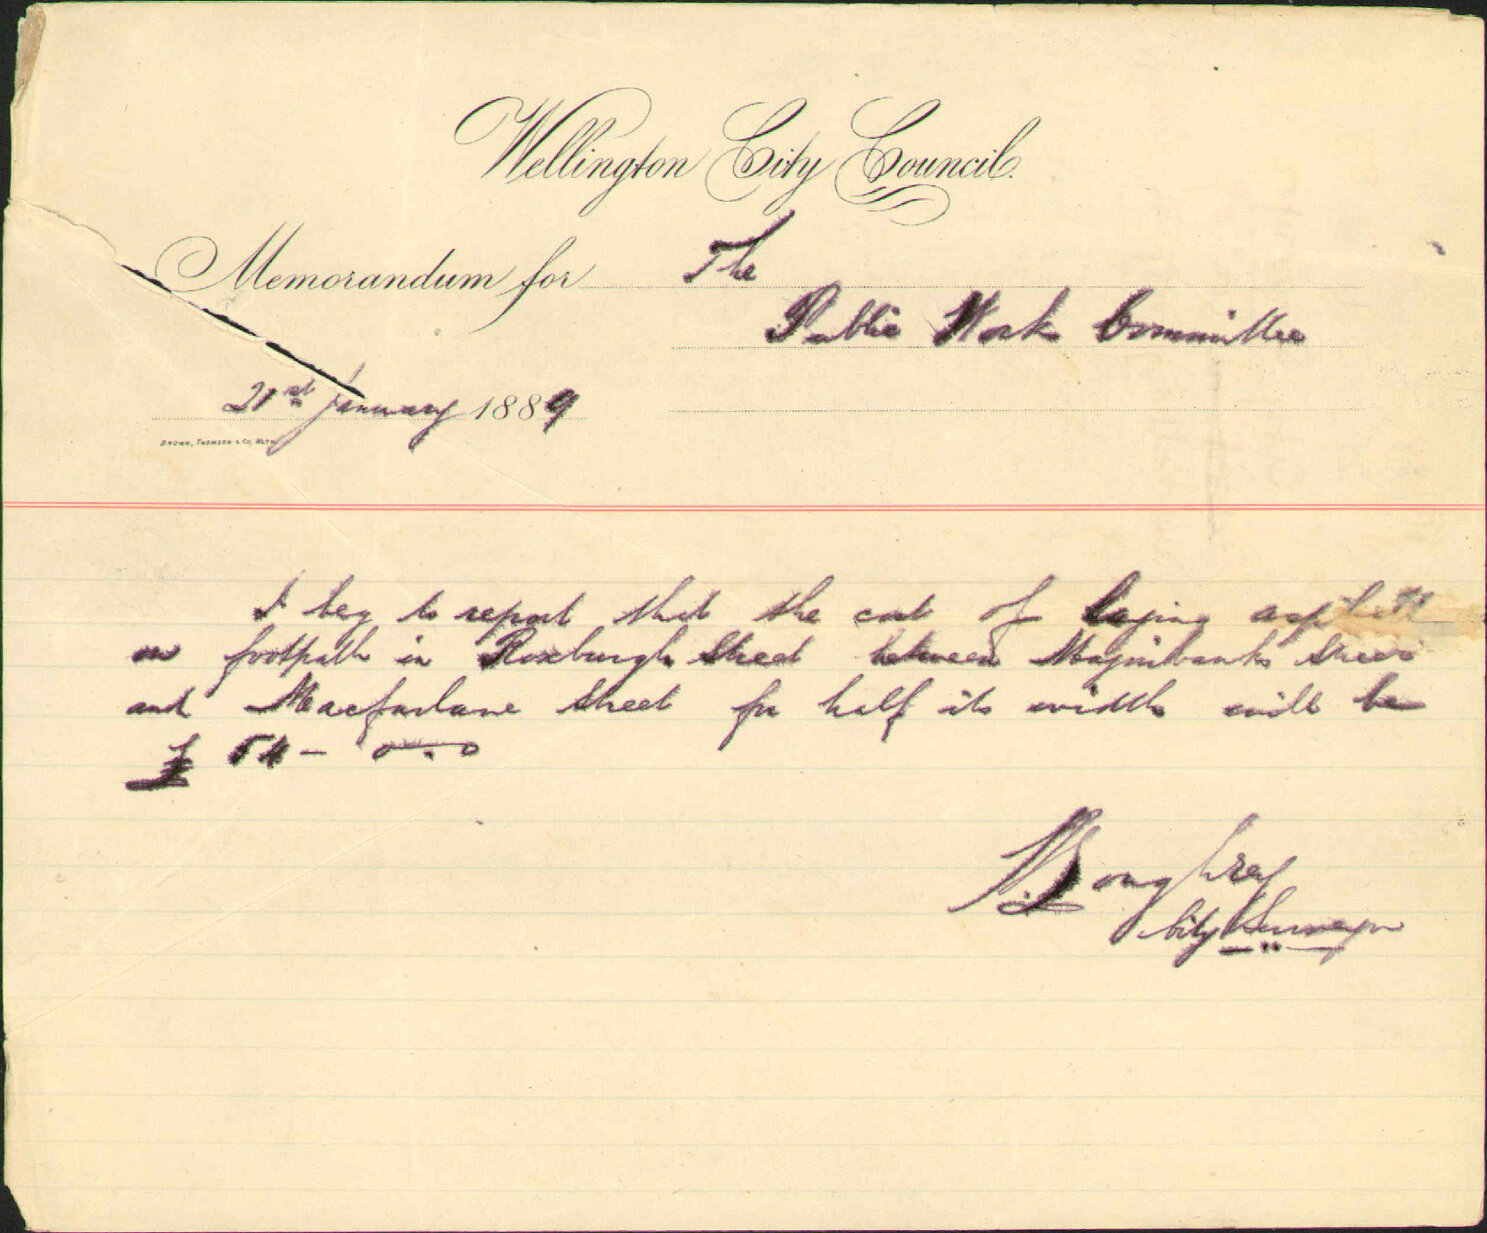 Wellington City Council.
Memorandum for The
Public Work Committee
21st January 1889
BROWN, THOMSON & Co, WGTN
I beg to report that the cost of laying asphalt
on footpath in Roxburgh Street between Majoribanks Street
and Macfarlane Street for half its width will be
£ 54 - 0 . 0
N. Loughrey
City Surveyor